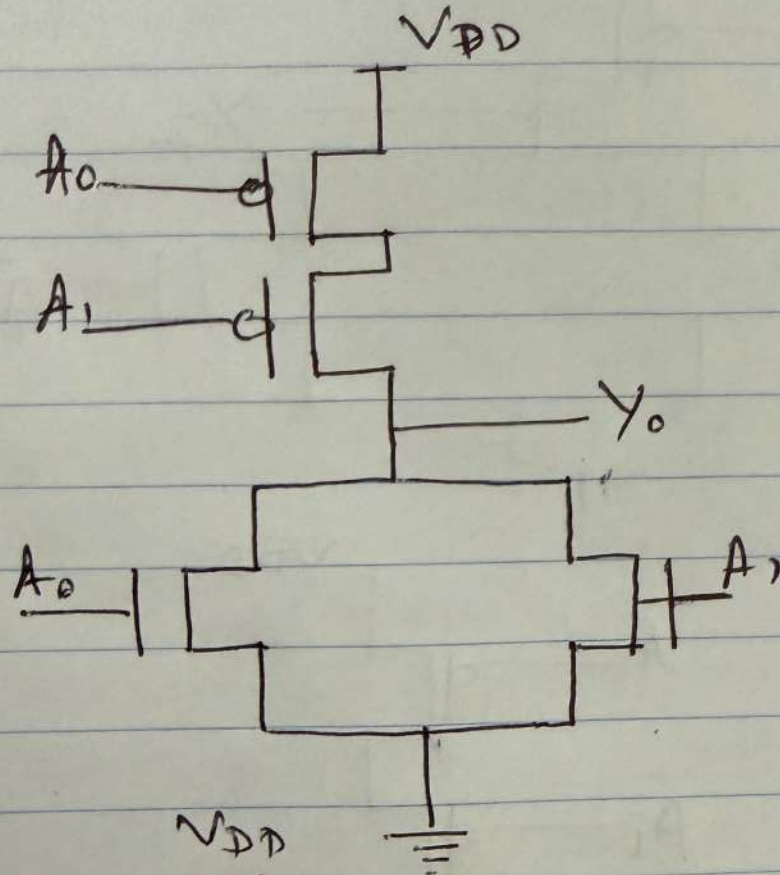 VDD
A0
A1
Y0
A0
A1
VDD
A1